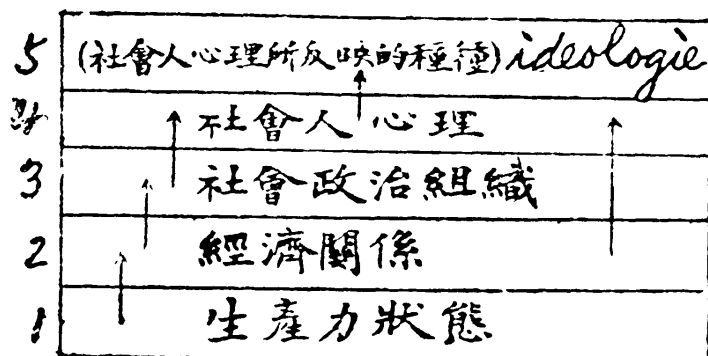 5 (社會人心理所反映的種種) ideologie
4 社會人心理
3 社會政治組織
2 經濟關係
1 生產力狀態